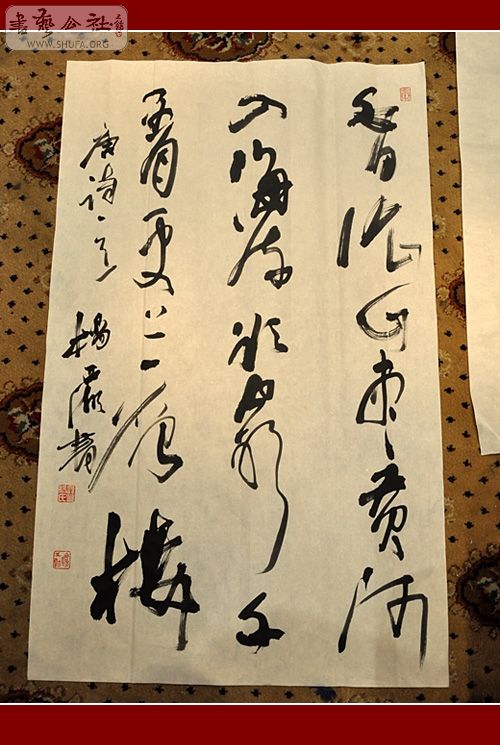 書藝公社
WWW.SHUFA.ORG
白日依山尽黄河
入海流欲穷千
里目更上一层楼
唐诗一首